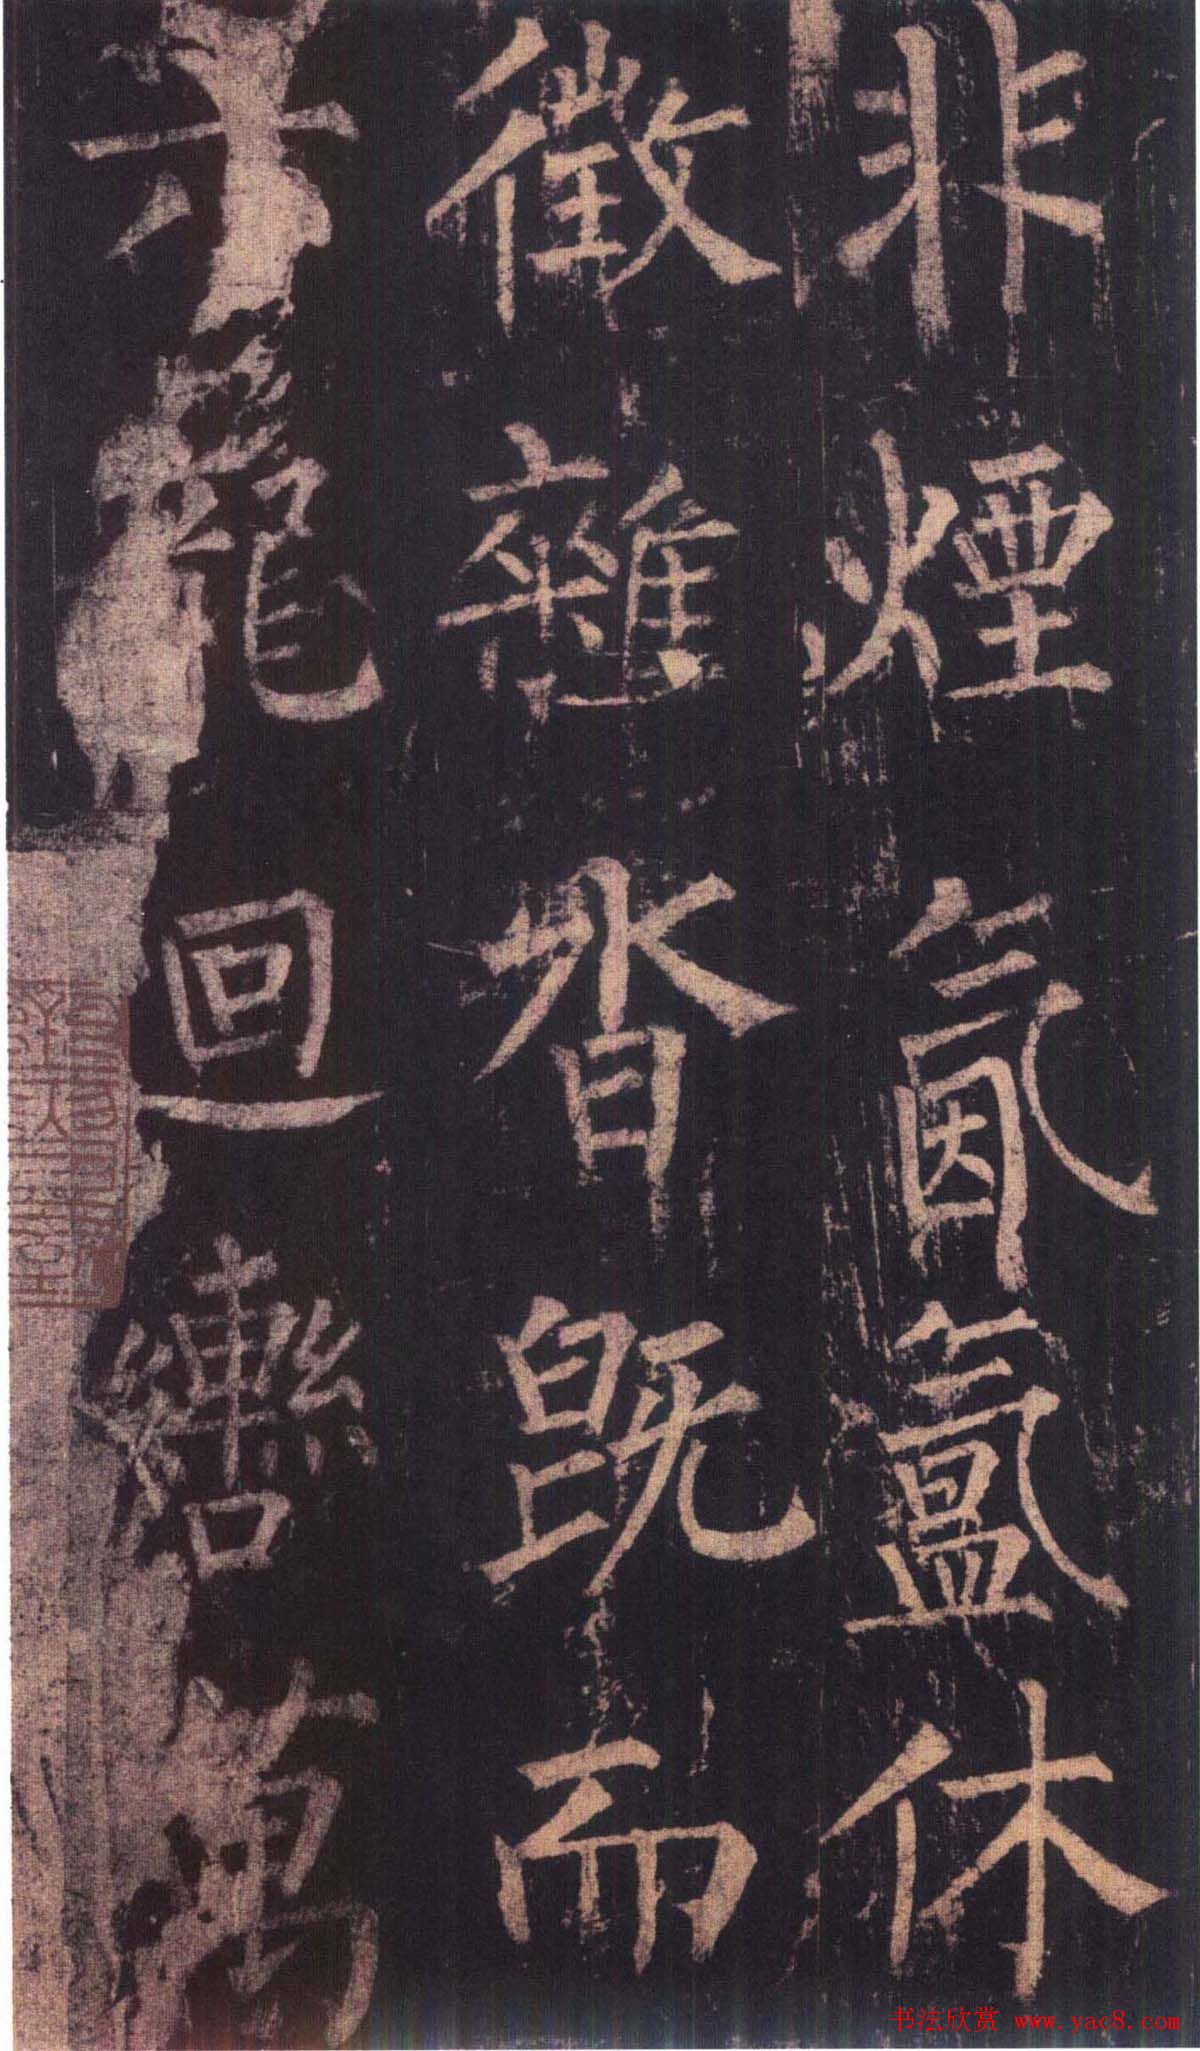 非煙氤氳休
徵雜沓既而
六龍迴轡萬
书法欣赏 www.yac8.com